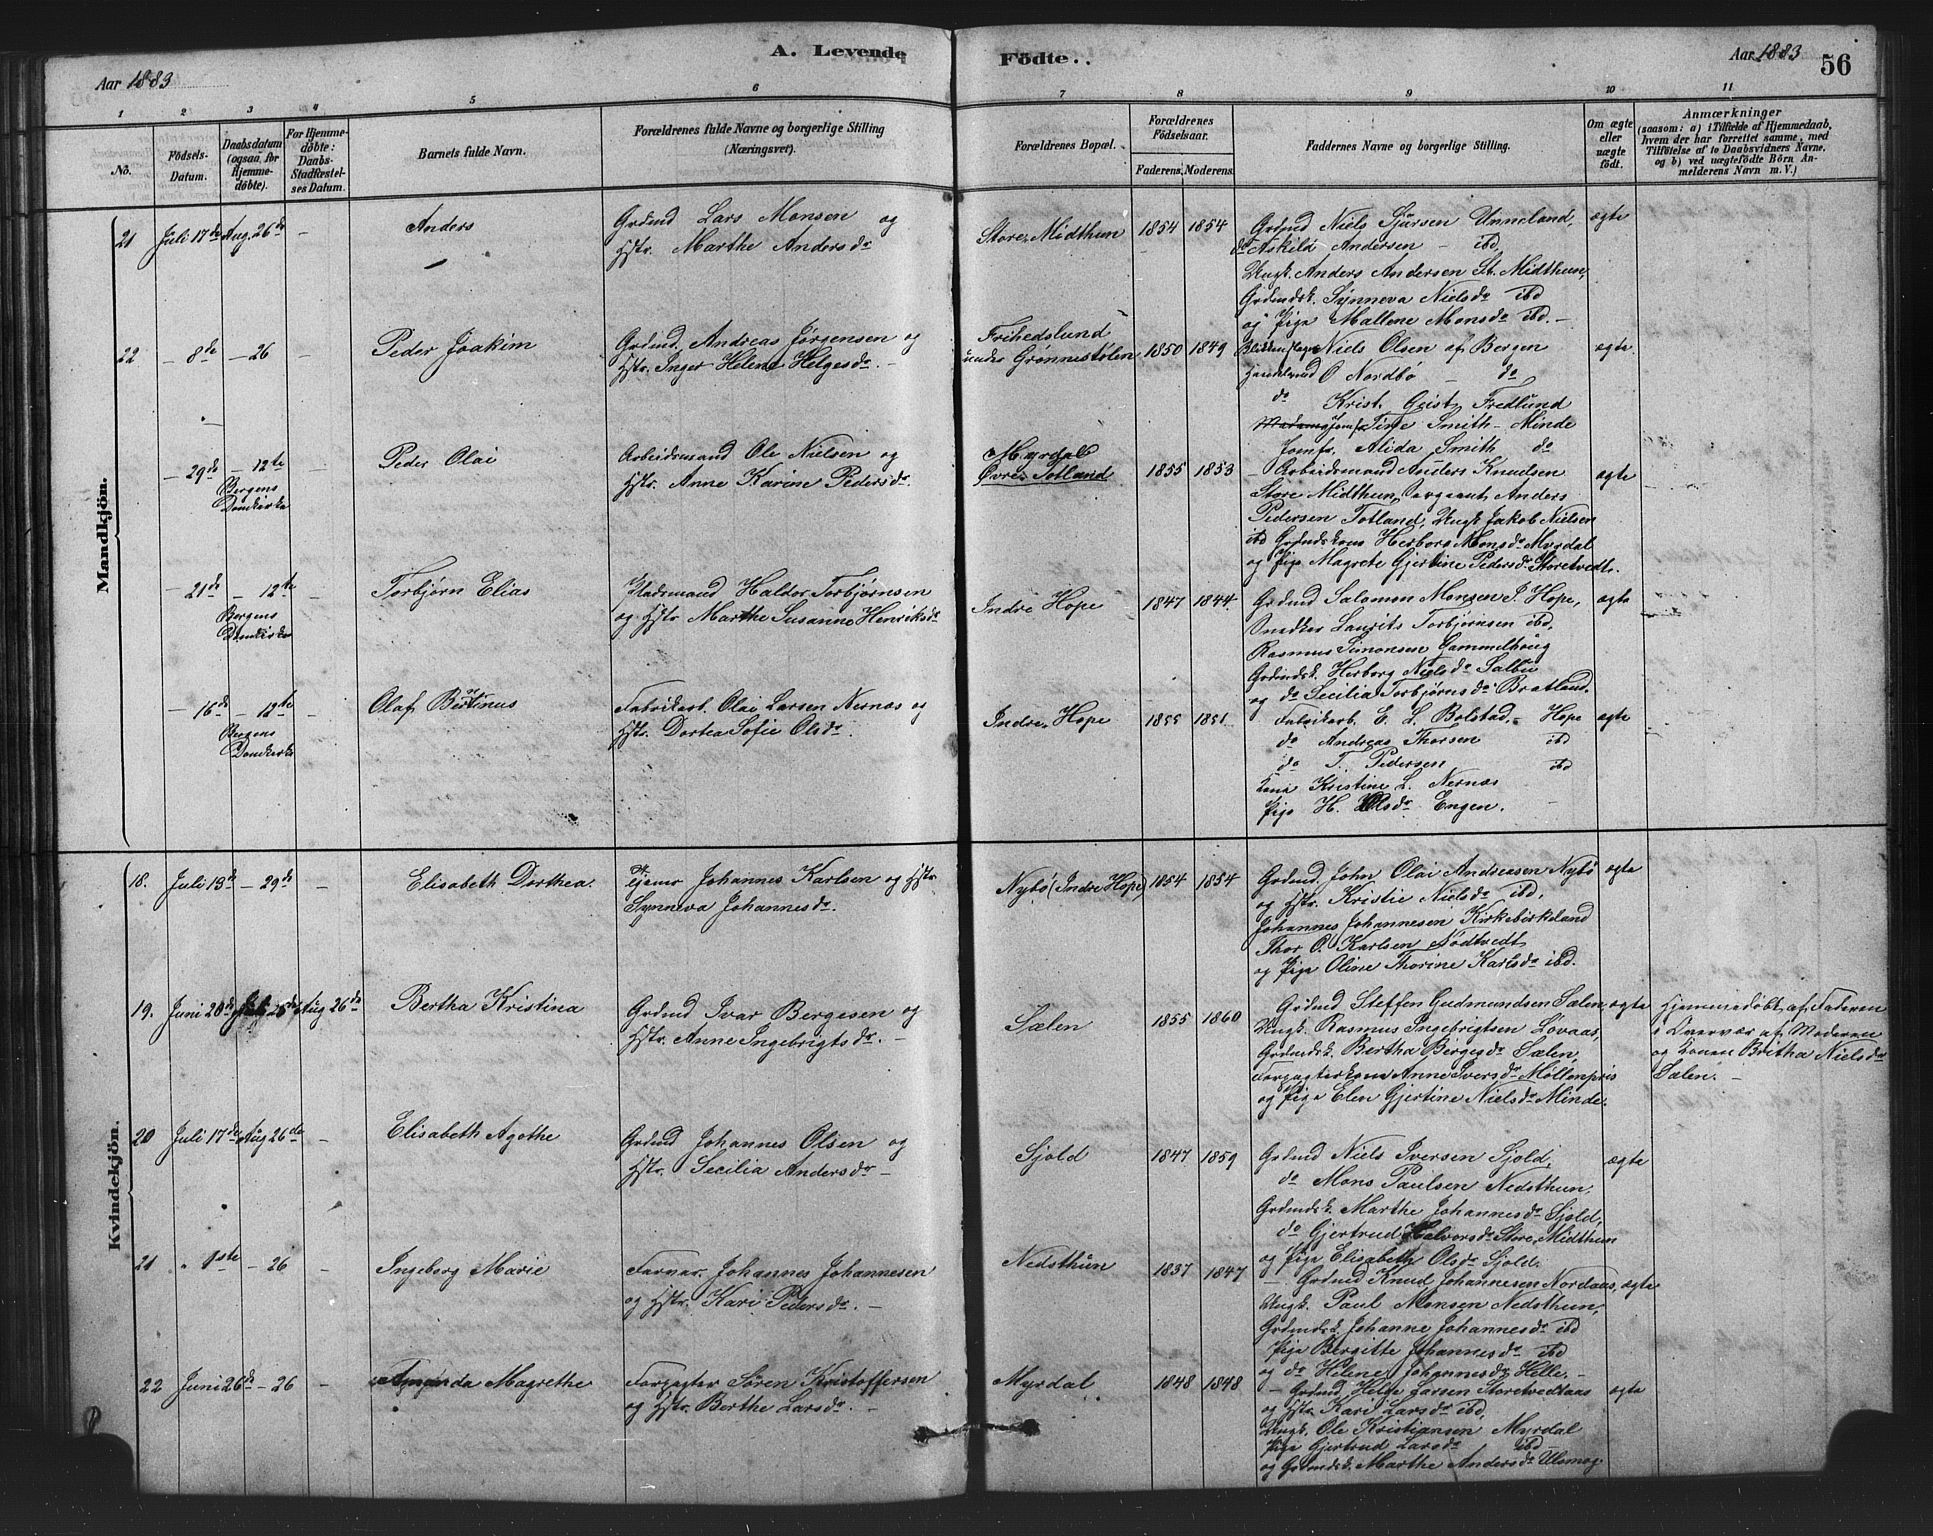 A. Levende Födte.
Aar 1883
Aar 1883
56
1 2 3 4 5 6 7 8 9 10 11
No.
Födsels-Datum.
Daabsdatum (ogsaa for Hjemme-döbte).
For Hjemme-döbte: Daabs-Stadfæstel-ses Datum.
Barnets fulde Navn.
Forældrenes fulde Navne og borgerlige Stilling (Næringsvei).
Forældrenes Bopæl.
Forældrenes Födselsaar.
Faderens. Moderens.
Faddernes Navne og borgerlige Stilling.
Om ægte eller uægte födt.
Anmærkninger
(saasom: a) i Tilfælde af Hjemmedaab, hvem der har forrettet samme, med Tilföielse af to Daabsvidners Navne, og b) ved uægtefödte Börn An-melderens Navn m. V.)
Mandkjön.
21 Juli 17de Aug. 26de – Anders
Grdmd Lars Monsen og
Hstr. Marthe Andersdr
Store Midthun 1854 1854
Grdmd Niels Sjursen Unneland,
do Askild Andersen – ibd
Ungk. Anders Andersen St. Midthun,
Grdmdsk. Synneva Nielsdr ibd
og Pige Mallene Monsdr ibd. –
ægte
22 – 8de – 26 – Peder Joakim
Grdmd. Andreas Jørgensen og
Hstr. Inger Helene Helgesdr. –
Frihedslund
under Grønnestølen 1850 1849
Niels Olsen af Bergen
O Nordbø – do
do Krist. Geist Fredlund
Tine Smith – Minde
Jomfr. Alida Smith do
ægte.
– 29de – 12te
Bergens
Domkirke
Peder Olai
Arbeidsmand Ole Nielsen og
Hstr. Anne Karine Pedersdr.
Myrdal
Øvre Totland 1855 1853
– Arbeidsmand Anders Knudsen
Store Midthun, Sergeant Anders
Pedersen Totland, Ungk Jakob Nielsen
ibd Grdmdskone Herborg Monsdr Myrdal
og Pige Magrete Gjertine Pedersdr Storetvedt.
ægte
– 21de – 12te –
Bergens
Domkirke
Torbjørn Elias
Haldor Torbjørnsen
og Hstr Marthe Susanne Henriksdr
Indre Hope 1847 1844
Grdmd Salomon Monsen I. Hope,
Snedker Laurits Torbjørnsen ibd.
Rasmus Simonsen Gammelhoug
Grdmdsk. Herborg Nielsdr Salbu
og do Secilia Torbjørnsdr Bratland.
ægte
– 16de – 12te –
Bergens
Domkirke
Olaf Bertinus
Fabrikarb. Olai Larsen Nernæs og
Hstr. Dortea Sofie Olsdr.
Indre Hope 1855 1851
Fabrikarb. E. L. Bolstad – Hope
do Andreas Thorsen ibd
do T. Pedersen ibd
Kone Kristine L. Nernæs
Pige H. Olsdr Engen.
ægte
Kvindekjön.
18. Juli 13de – 29de – Elisabeth Dorthea.
Tjener Johannes Karlsen og Hstr.
Synneva Johannesdr.
Nybø (Indre Hope) 1854 1854
Grdmd. John Olai Andreasen Nybø
og Hstr. Kristie Nielsdr ibd.
Johannes Johannesen Kirkebirkeland
Thor O. Karlsen Nödtvedt
og Pige Oline Thorine Karlsdr ibd.
ægte
19. Juni 20de Aug 26de Bertha Kristina
Grdmd Ivar Bergesen og
Hstr. Anne Ingebrigtsdr. –
Sælen 1855 1860
Grdmd Steffen Gudmundsen Sælen,
Ungk. Rasmus Ingebrigtsen Lövaas,
Grdmdsk. Bertha Bergesdr Sælen,
Forpagterkone Anne Iversdr Möllenpris
og Pige Elen Gjertine Nielsdr Minde.
ægte
Hjemmedøbt af Faderen
i Overvær af Moderen
og Konen Britha Nielsdr
Sælen. –
20 Juli 17de Aug 26de – Elisabeth Agathe
Grdmd Johannes Olsen og
Hstr. Secilia Andersdr –
Sjold 1847 1859
Grdmd Niels Iversen Sjold,
do Mons Paulsen Nedsthun,
Grdmdsk. Marthe Johannesdr Sjold,
do Gjertrud Halvorsdr Store Midthun
og Pige Elisabeth Olsdr Sjold.
ægte
21 " 1ste – 26 – Ingeborg Marie
Johannes Johannesen
og Hstr. Kari Pedersdr. –
Nedsthun 1837 1847
– Grdmd Knud Johannesen Nordaas,
Ungk. Paul Monsen Nedsthun,
Grdmdsk. Johanne Johannesdr ibd
Pige Bergitte Johannesdr ibd
og do Helene Johannesdr Helle. –
ægte
22 Juni 26de – 26 – Amanda Magrethe
Forpagter Sören Kristoffersen
og Hstr. Berthe Larsdr. –
Myrdal 1848 1848
– Grdmd Helge Larsen Storetvedtaas
og Hstr. Kari Larsdr ibd,
Ungk. Ole Kristiansen Myrdal
Pige Gjertrud Larsdr ibd –
og Grdmdsk. Marthe Andersdr Ulsmog.
ægte